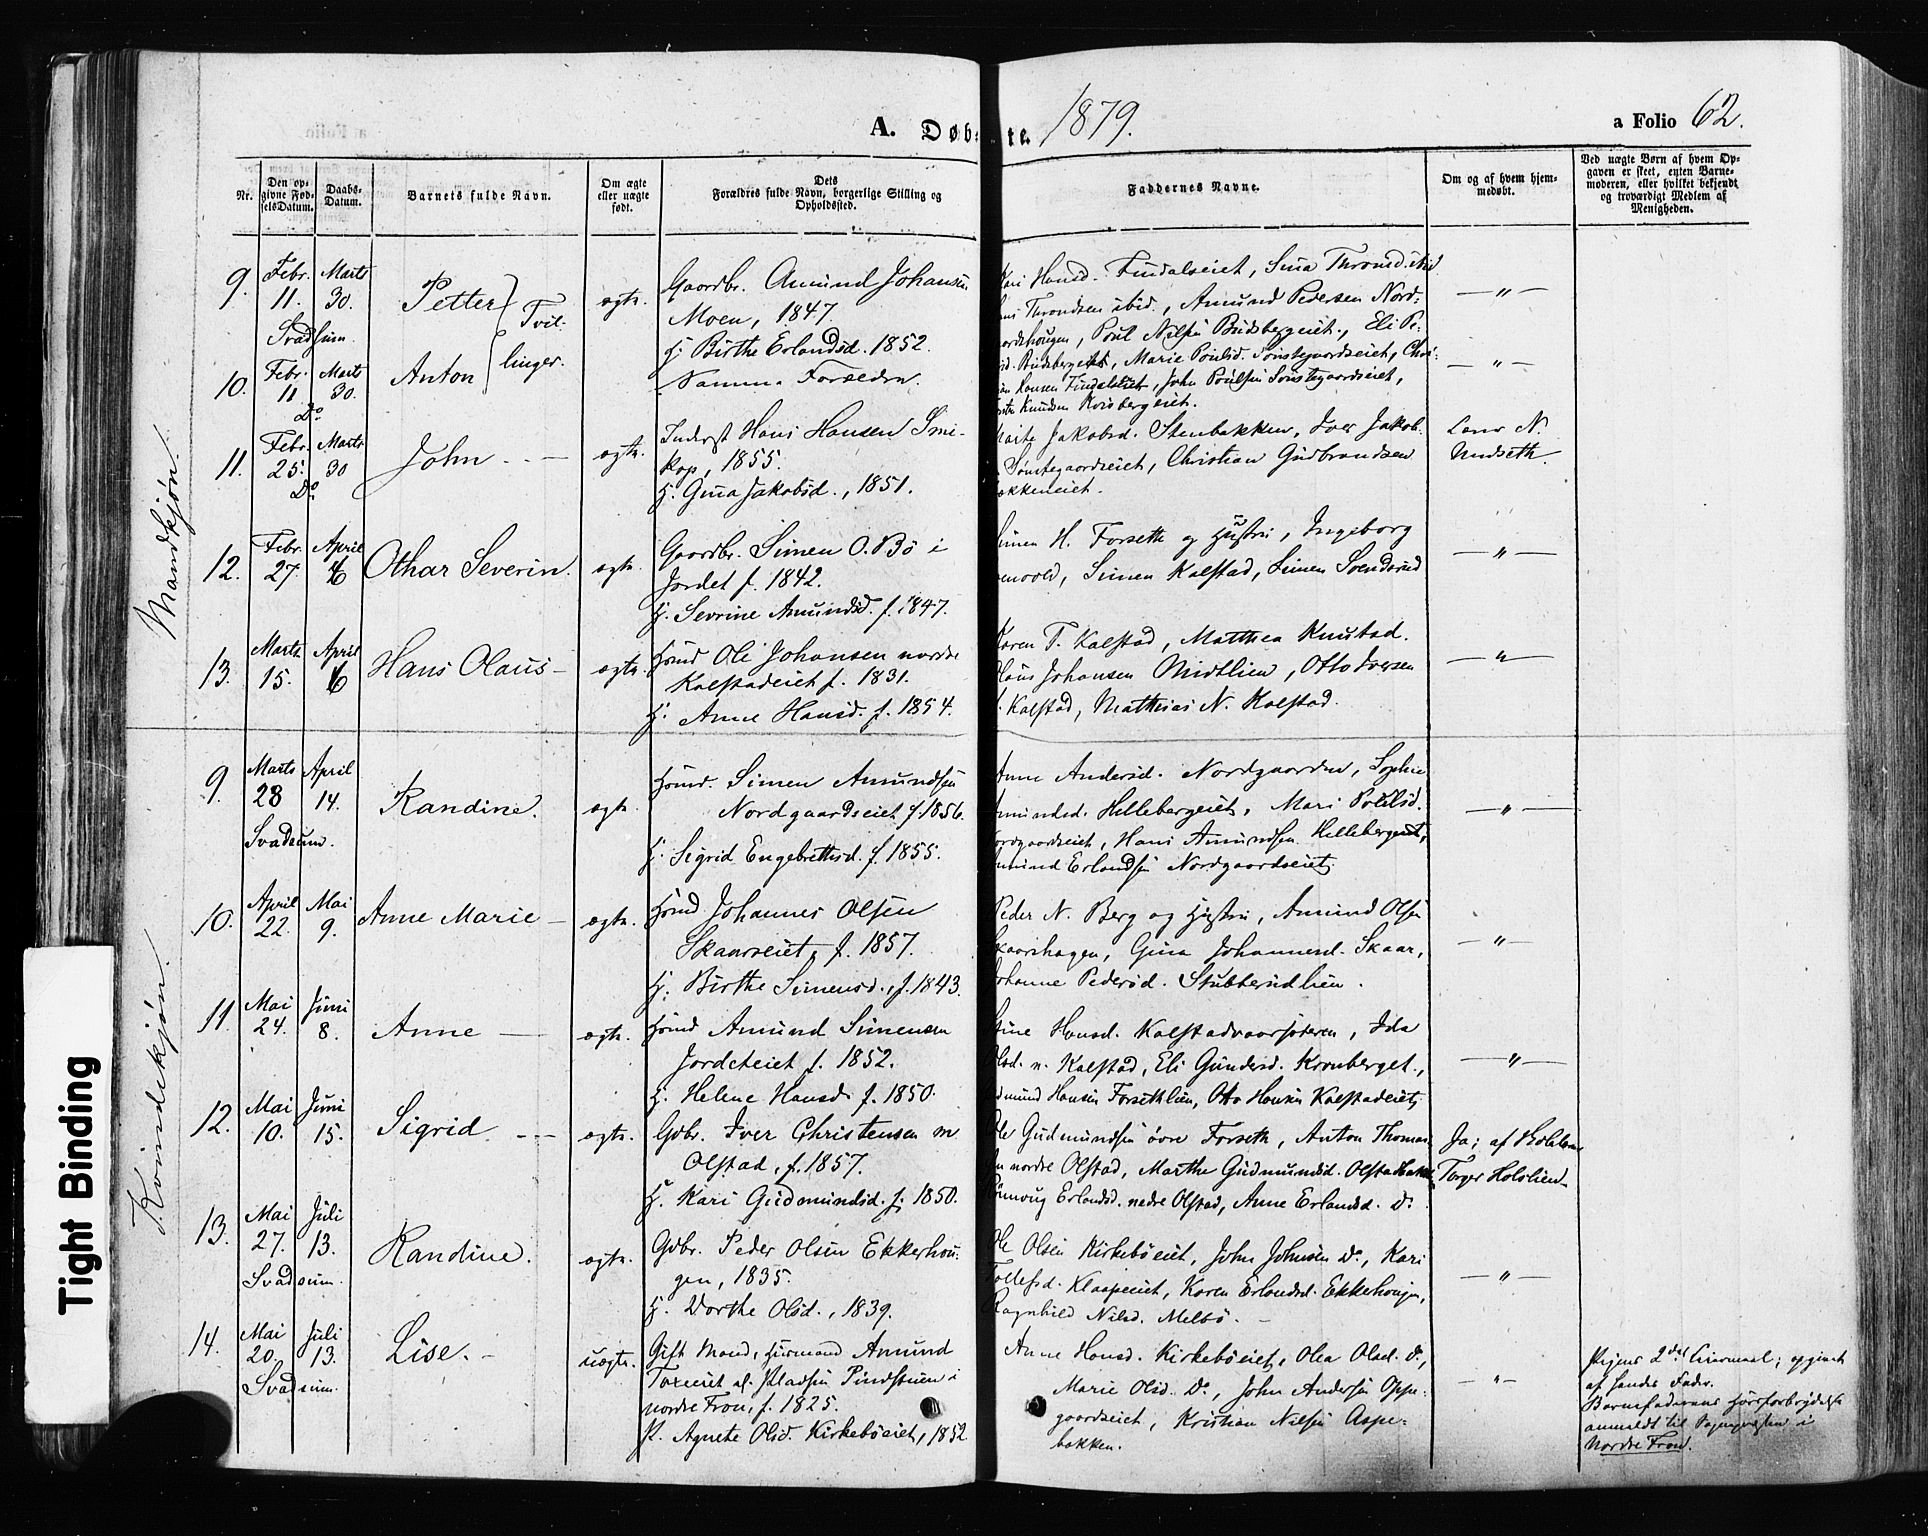 A. Døb- te. 1879.
a Folio 62.
Nr.
Den op-
givne Fød-
selsDatum.
Daabs-
Datum.
Barnets fulde Navn.
Om ægte
eller uægte
født.
Dets
Forældres fulde Navn, borgerlige Stilling og
Opholdssted.
Faddernes Navne.
Om og af hvem hjem-
medøbt.
Ved uægte Børn af hvem Op-
gaven er skeet, enten Barne-
moderen, eller hvilket bekjendt
og troværdigt Medlem af
Menigheden.
Mandkjøn.
9.
Febr. 11.
Marts 30.
Svadsum.
Petter
Tvil-
linger.
ægte.
Gaardbr. Amund Johansen
Moen, 1847.
H: Birthe Erlandsd. 1852.
Kari Hansd. Findalseiet, Sina Thronsd. ibid
Throndsen ibid., Amund Pedersen Nord-
Poul Nilsen Budsbergeiet, Eli Pe-
Marie Poulsd. Sønstegaardseiet, Chri-
Hansen Findalseiet, John Poulsen Sønstegaardseiet,
Knudsen Kvisbergeiet.
—"—
10.
Febr. 11
Marts 30.
Do
Anton
Samme Forældre.
—"—
11.
Febr. 25.
Marts 30
Do
John
ægte.
Inderst Hans Hansen Smi-
kop, 1855.
H. Gina Jakobsd., 1851.
Jakobsd. Stenbakken, Iver Jakob-
Sønstegaardseiet, Christian Gudbrandsen
Bakkeneiet.
Lars N.
Undseth.
12.
Febr. 27.
April 6
Othar Severin.
ægte.
Gaardbr. Simen O. Bø i
Jordet f. 1842.
H. Sevrine Amundsd. f. 1847.
Simen H. Forseth og Hustru, Ingeborg
Simen Kalstad, Simen Svendsrud
—"—
13.
Marts 15.
April 6
Hans Olaus
ægte.
Hmd Ole Johansen nordre
Kalstadeiet f. 1831.
H. Anne Hansd. f. 1854.
Karen T. Kalstad, Matthea Knutsd.
Olaus Johansen Midtlien, Otto Iversen
Kalstad, Mathias N. Kalstad.
—"—
Kvindekjøn.
9.
Marts 28
April 14.
Svadsum.
Randine.
ægte
Hmd. Simen Amundsen
Nordgaardseiet f. 1856.
H. Sigrid Engebrethsd. f. 1855.
Anne Andersd. Nordgaarden, Sophie
Amundsd. Hellebergeiet, Mari Poulsd.
Nordgaardseiet, Hans Amundsen Hellebergeiet,
Amund Erlandsen Nordgaardseiet.
—"—
10.
April 22.
Mai 9.
Anne Marie
ægte.
Hmd Johannes Olsen
Skaarseiet, f. 1857.
H: Birthe Simensd., f. 1843.
Peder N. Berg og Hustru, Amund Olsen
Skaarshagen, Gina Johannesd. Skaar,
Johanne Pedersd. Stubberudlien.
—"—
11.
Mai 24.
Juni 8.
Anne
ægte.
Hmd Amund Simensen
Jordeteiet f. 1852.
H. Helene Hansd. f. 1850.
Stine Hansd. Kalstad, Ida
Olsd. n. Kalstad, Eli Gundersd. Kronberget,
Hansen Forsethlien, Otto Hansen Kalstadeiet,
—"—
12.
Mai 10.
Juni 15.
Sigrid.
ægte.
Gdbr. Iver Christensen
Olstad, f. 1857.
H. Kari Gudmundsd. f. 1850.
Ole Gudmundsen øvre Forseth, Anton Thomas-
en nordre Olstad, Marthe Gudmundsd. Olstad
Rønnoug Erlandsd. nedre Olstad, Anne Erlandsd. Do
Ja; af
Torger Holslien.
13.
Mai 27.
Juli 13.
Svadsum.
Randine.
ægte.
Gdbr. Peder Olsen Ekkerhou-
gen, 1835.
H. Dorthe Olsd., 1839.
Ole Olsen Kirkebøeiet, John Johnsen Do, Kari
Tollefsd. Klaapeiet, Karen Erlandsd. Ekkerhougen,
Ragnhild Nilsd. Melbø.
—"—
14.
Mai 20.
Juli 13.
Svadsum.
Lise.
uægte.
Gift Mand, Huusmand Amund
af Pladsen i
nordre Fron, f. 1825.
P. Agnete Olsd. Kirkebøeiet, 1852
Anne Hansd. Kirkebøeiet, Olea Olsd. Do,
Marie Olsd. Do, John Andersen Oppe-
gaardseiet, Kristian Nilsen Aspe-
bakken.
—"—
Pigens 2det Leiermaal; opgivet
af hendes Fader.
Barnefaderens
anmeldt til Sogne i
Nordre Fron.
Tight Binding